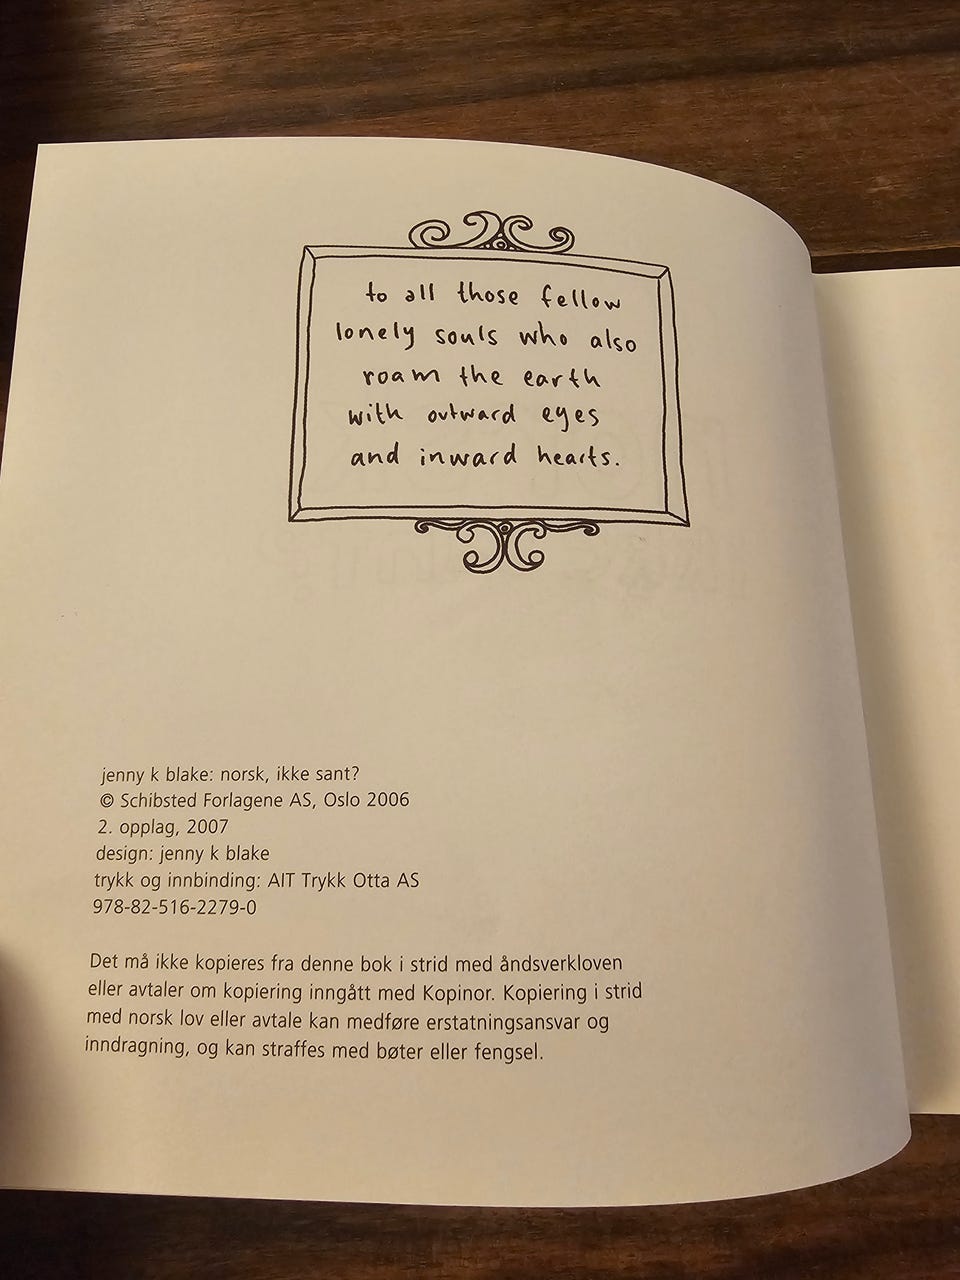 to all those fellow
lonely souls who also
roam the earth
with outward eyes
and inward hearts.
jenny k blake: norsk, ikke sant?
© Schibsted Forlagene AS, Oslo 2006
2. opplag, 2007
design: jenny k blake
trykk og innbinding: AIT Trykk Otta AS
978-82-516-2279-0
Det må ikke kopieres fra denne bok i strid med åndsverkloven
eller avtaler om kopiering inngått med Kopinor. Kopiering i strid
med norsk lov eller avtale kan medføre erstatningsansvar og
inndragning, og kan straffes med bøter eller fengsel.